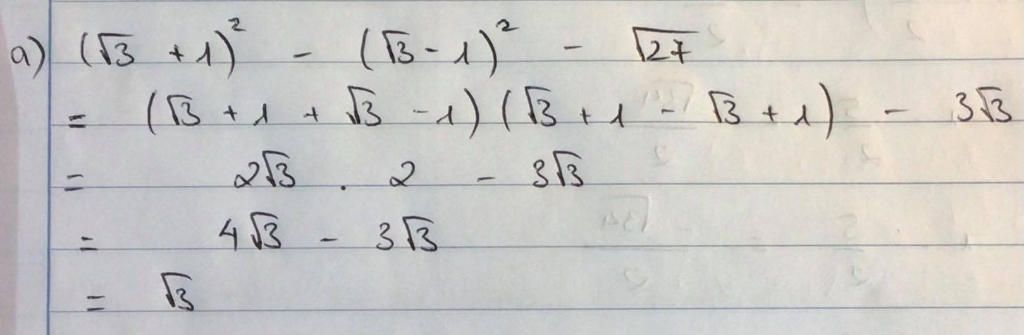 a) (√3 + 1)² - (√3 - 1)² - √27
= (√3 + 1 + √3 - 1) (√3 + 1 - √3 + 1) - 3√3
= 2√3 . 2 - 3√3
= 4√3 - 3√3
= √3